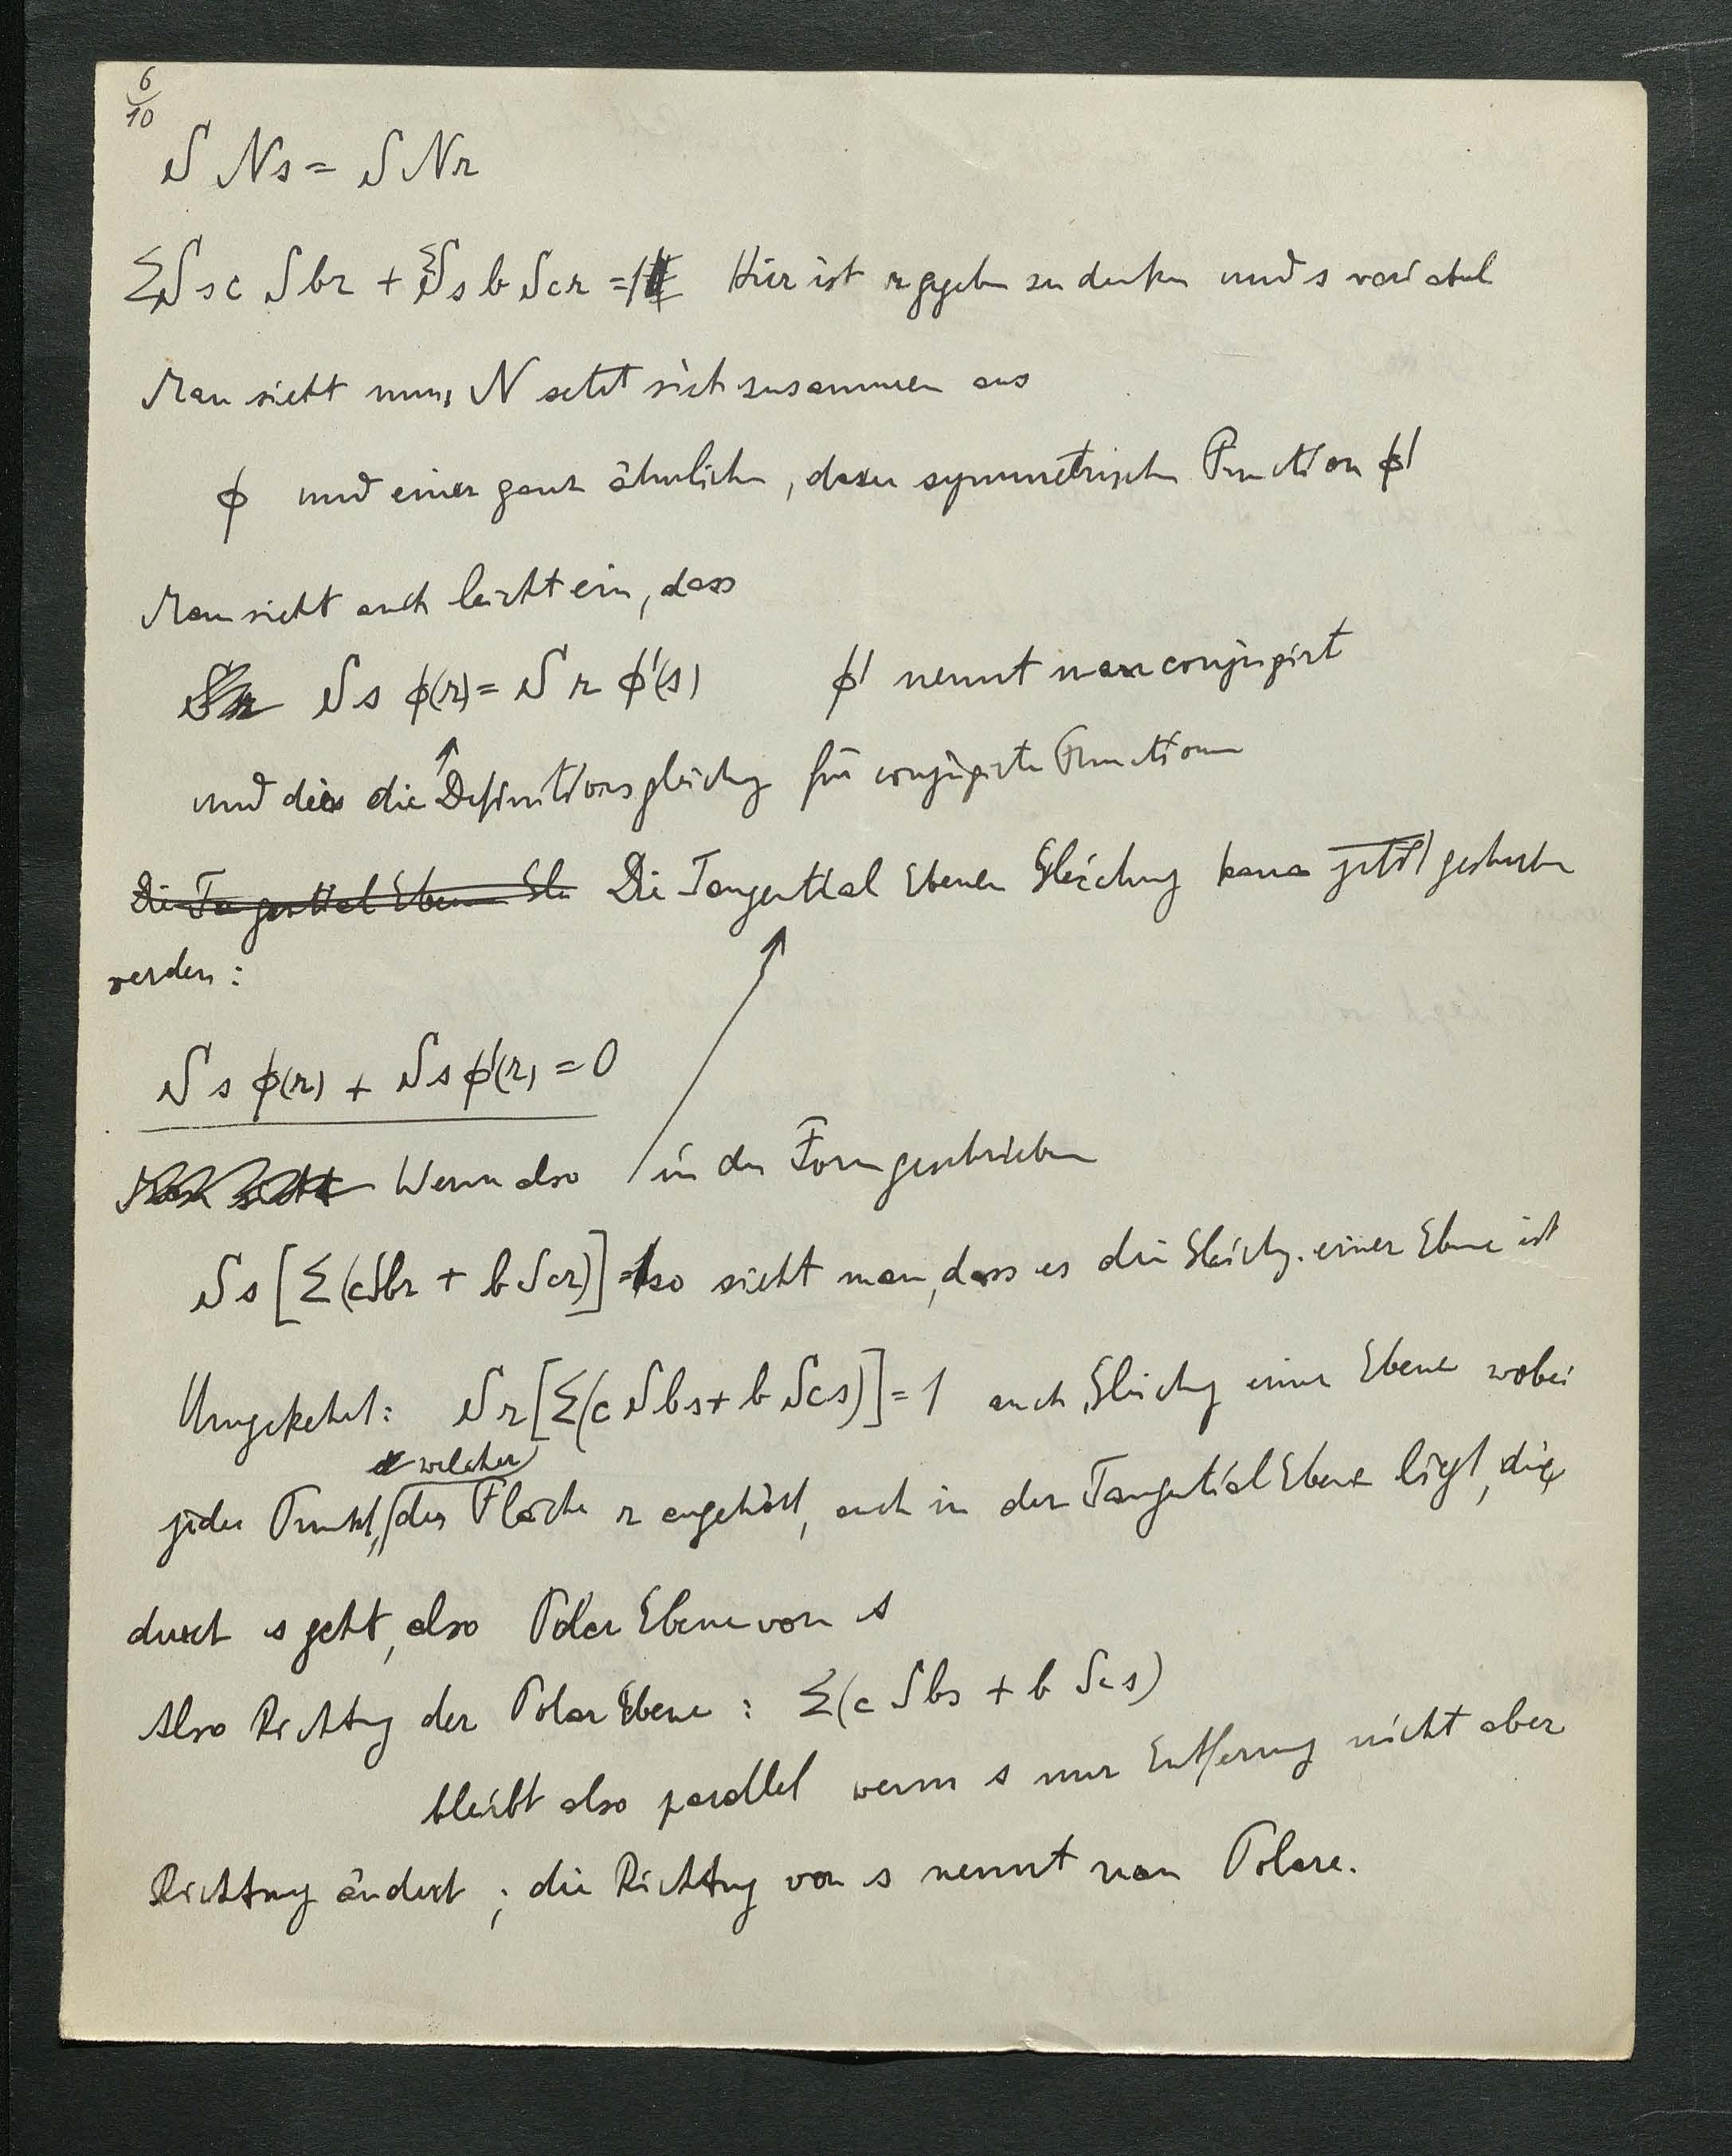 6/10
S Ns = S Nr
ΣSsc Sbr + ΣSsb Scr = 1 Hier ist r gegeben zu denken und s variabel
Man sieht nun, N setzt sich zusammen aus
ϕ und einer ganz ähnlichen, dazu symmetrischen Function ϕ'
Man sieht auch leicht ein, dass
Sr Ss ϕ(r) = S r ϕ'(s) ϕ' nennt man conjugirt
und dies die Definitionsgleichung für conjugirte Functionen
Die Tangential Ebenen Gle Die Tangential Ebenen Gleichung kann jetzt geschrieben
werden:
S s ϕ(r) + S s ϕ'(r) = 0
Man sieht Wenn also in der Form geschrieben
S s [Σ(cSbr + b Scr)] = 1 so sieht man, dass es die Gleichg. einer Ebene ist
Umgekehrt: S r [Σ(c Sbs + b Scs)] = 1 auch Gleichung einer Ebene wobei
welcher
jeder Punkt, der Fläche r angehört, auch in der Tangential Ebene liegt, die
durch s geht, also Polar Ebene von s
Also Richtung der Polar Ebene : Σ(c Sbs + b Scs)
bleibt also parallel wenn s nur Entfernung nicht aber
Richtung ändert ; die Richtung von s nennt man Polare.